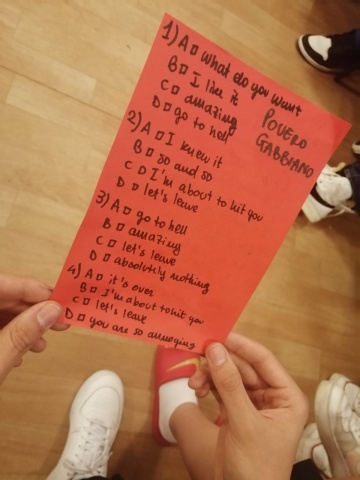 1) A □ what do you want
B □ I like it
C □ amazing
D □ go to hell
POVERO
GABBIANO
2) A □ I knew it
B □ so and so
C □ I'm about to hit you
D □ let's leave
3) A □ go to hell
B □ amazing
C □ let's leave
D □ absolutely nothing
4) A □ it's over
B □ I'm about to hit you
C □ let's leave
D □ you are so annoying